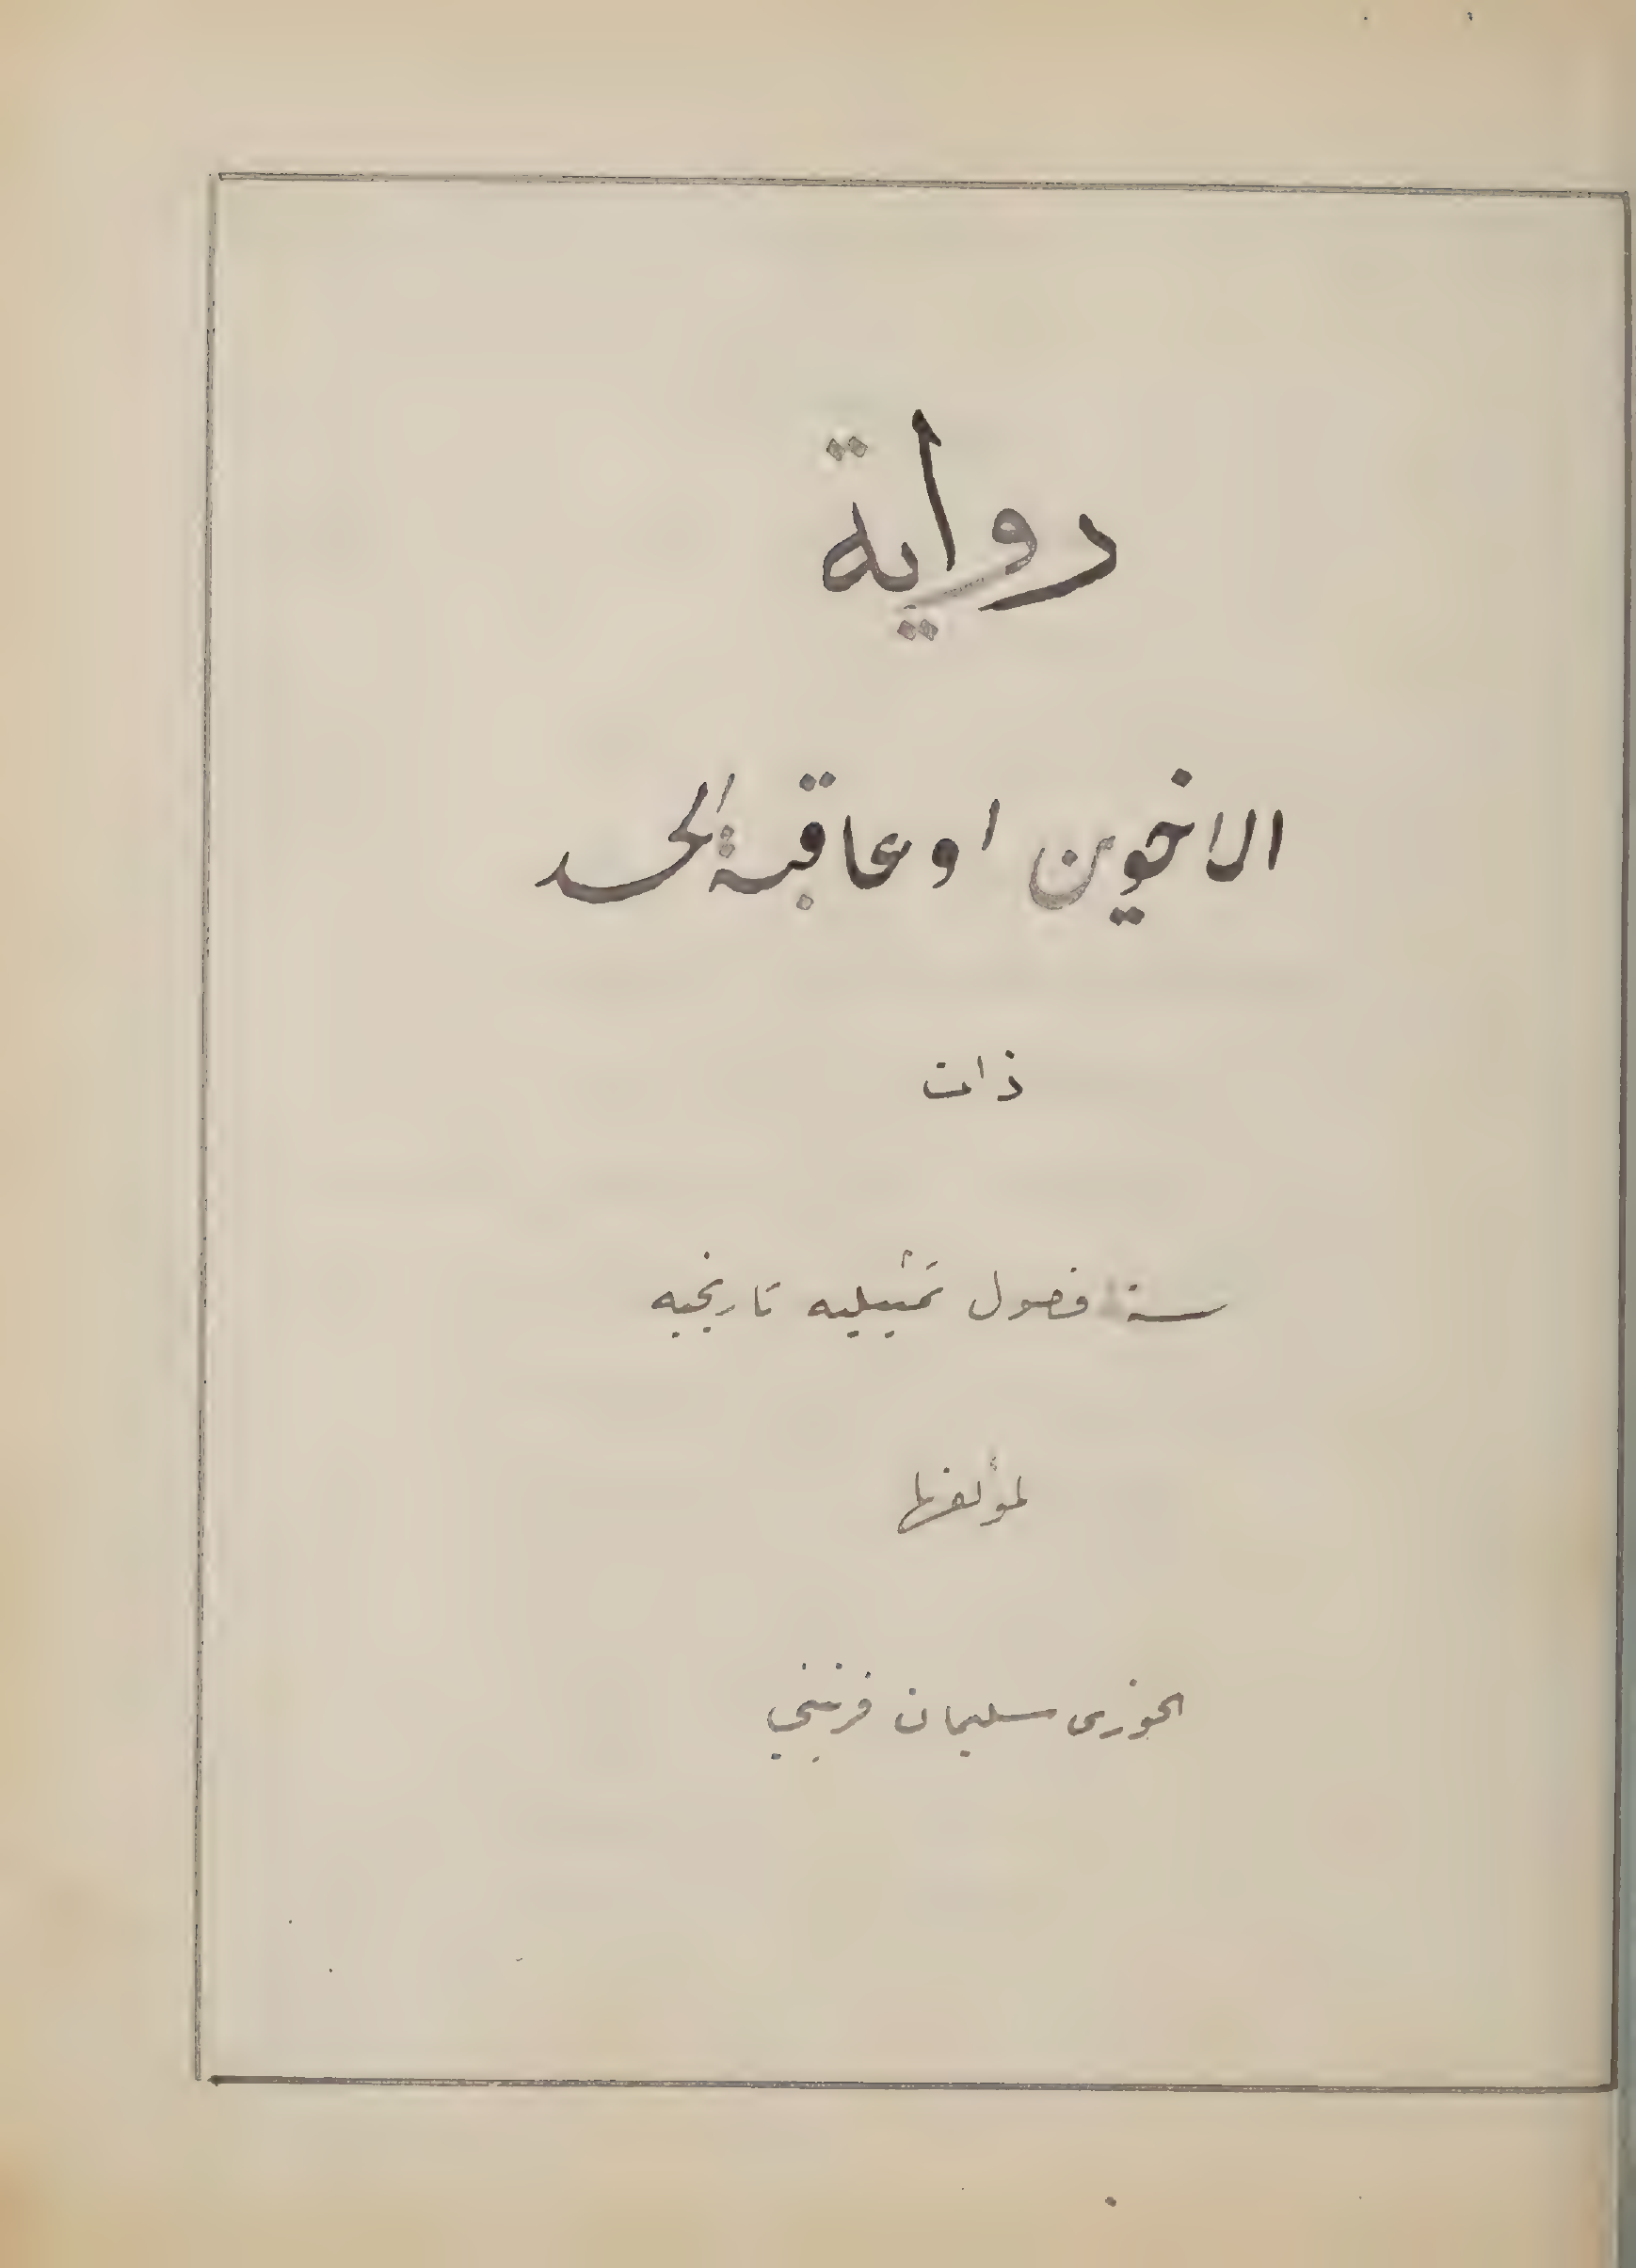 رواية
الاخوين او عاقبة الحسد
ذات
ستة فصول تمثيليه تاريخيه
لمؤلفها
الخوري سليمان فرنيني